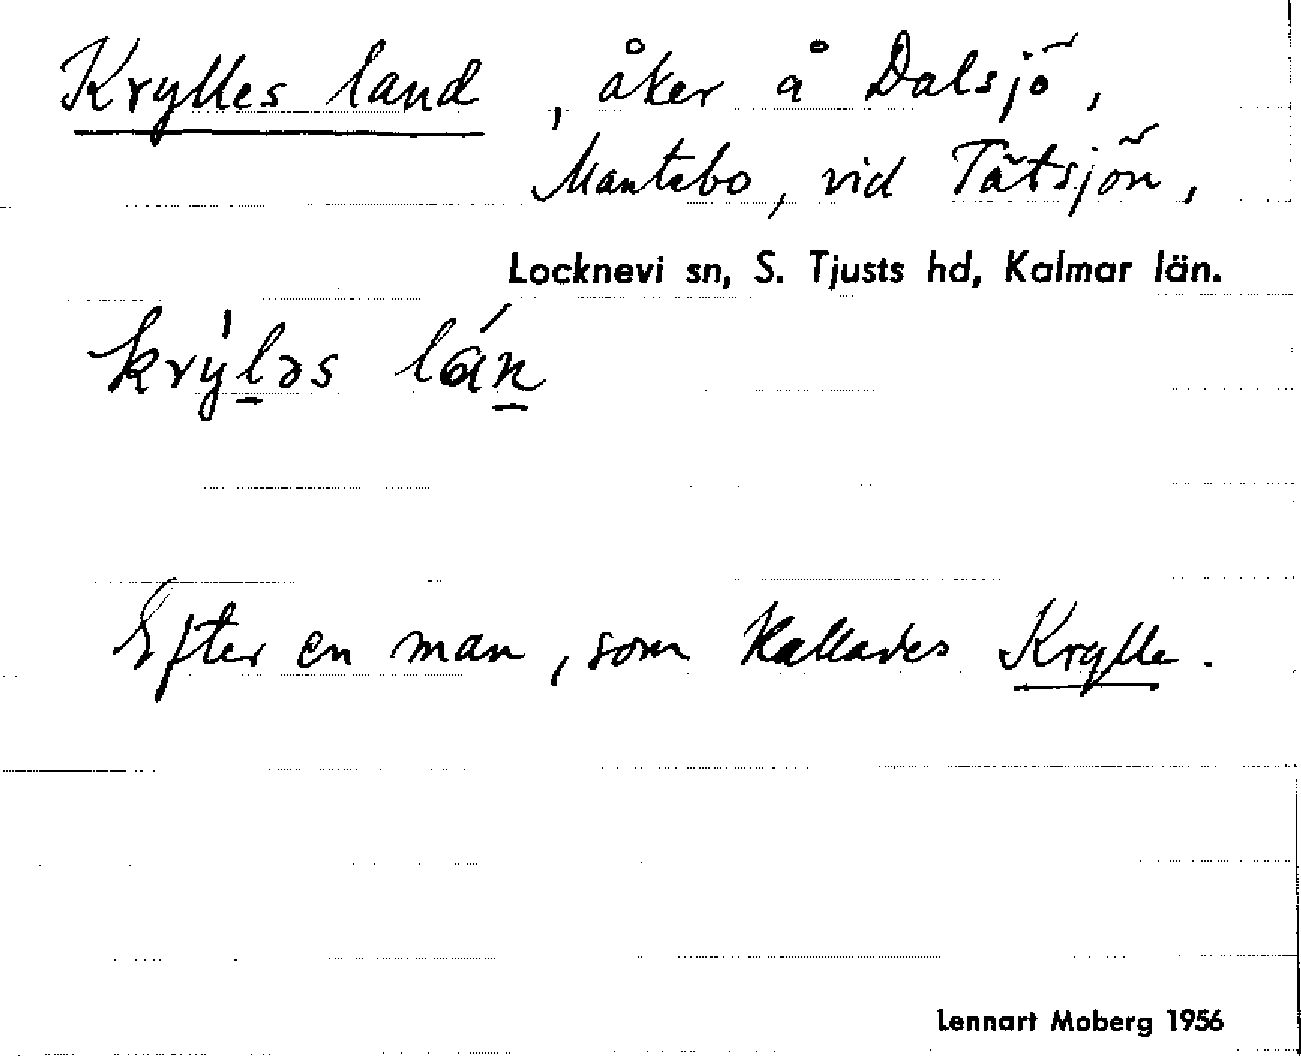 Krylles land, åker å Dalsjö,
Mantebo, vid Tätsjön,
Locknevi sn, S. Tjusts hd, Kalmar län.
krỳl̲əs lán̲
Efter en man, som kallades Krylle.
Lennart Moberg 1956